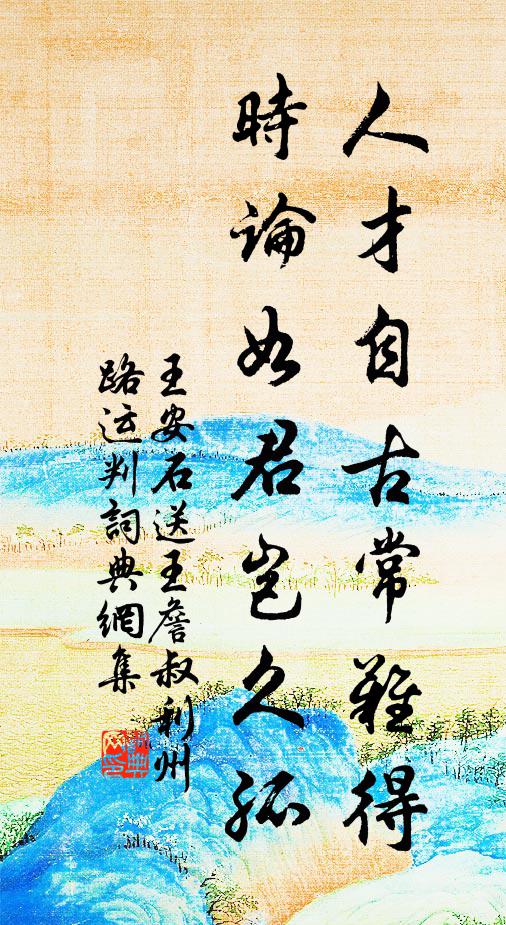 人才自古常難得
時論如君豈久孤
王安石送王詹叔利州
路运判詞典網集